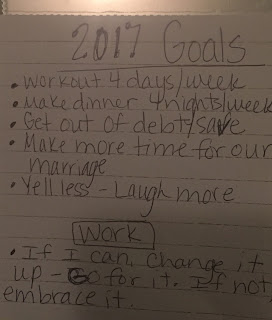 2017 Goals
• Workout 4 days/week
• Make dinner 4nights/week
• Get out of debt/save
• Make more time for our
marriage
• Yell less - Laugh more
Work
• If I can change it
up - Go for it. If not,
embrace it.